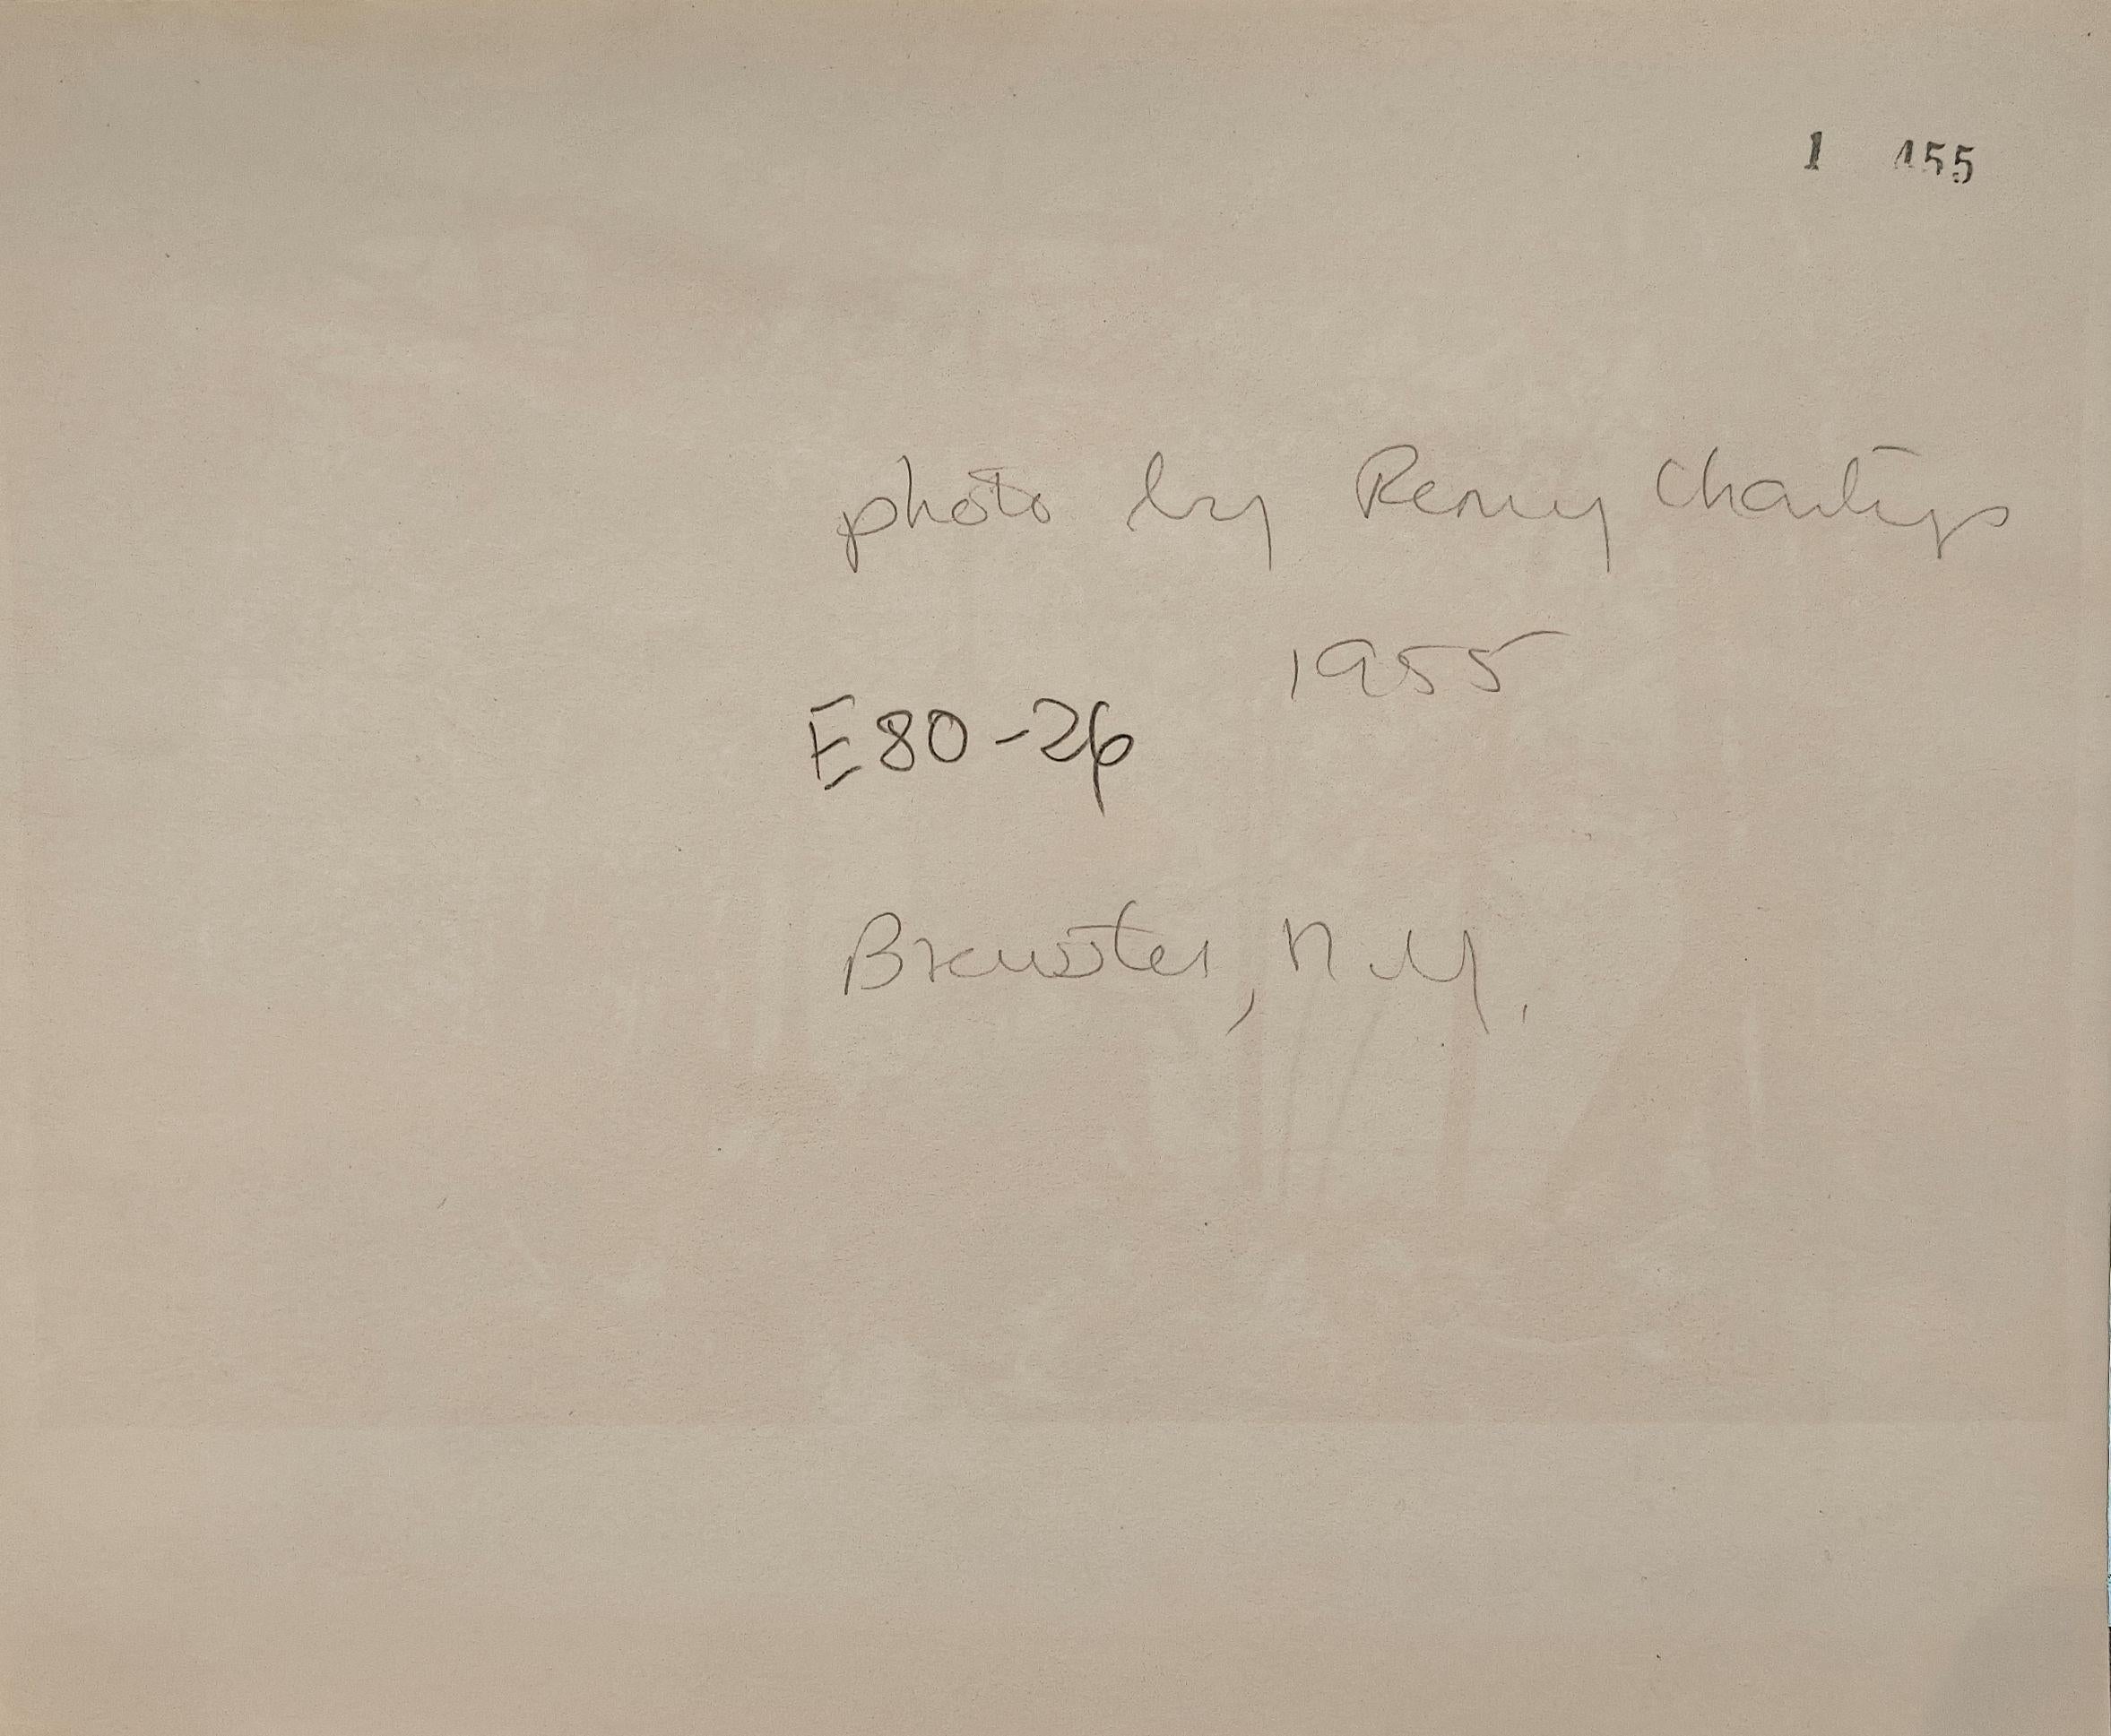 1 155
photo by Remy Charlip
1955
E80-26
Brewster, N.Y.